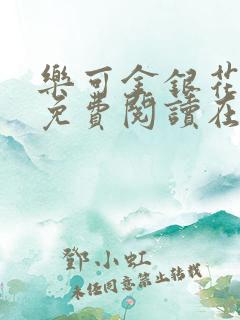 樂可金銀花
免費閱讀在
鄧小虹
未經同意禁止轉載